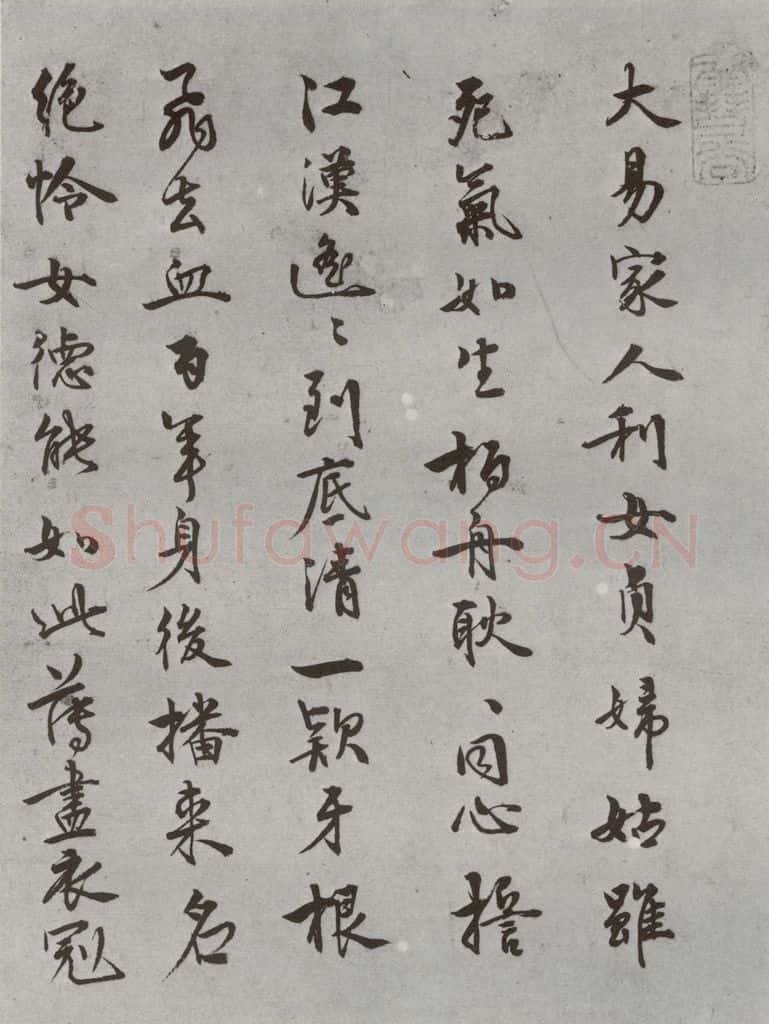 大易家人利女貞婦姑雖
死氣如生栢舟耿〻同心誓
江漢遙〻到底清一顆牙根
飛去血百年身後播来名
絶憐女德能如此薄盡衣冠
Shufawang.CN